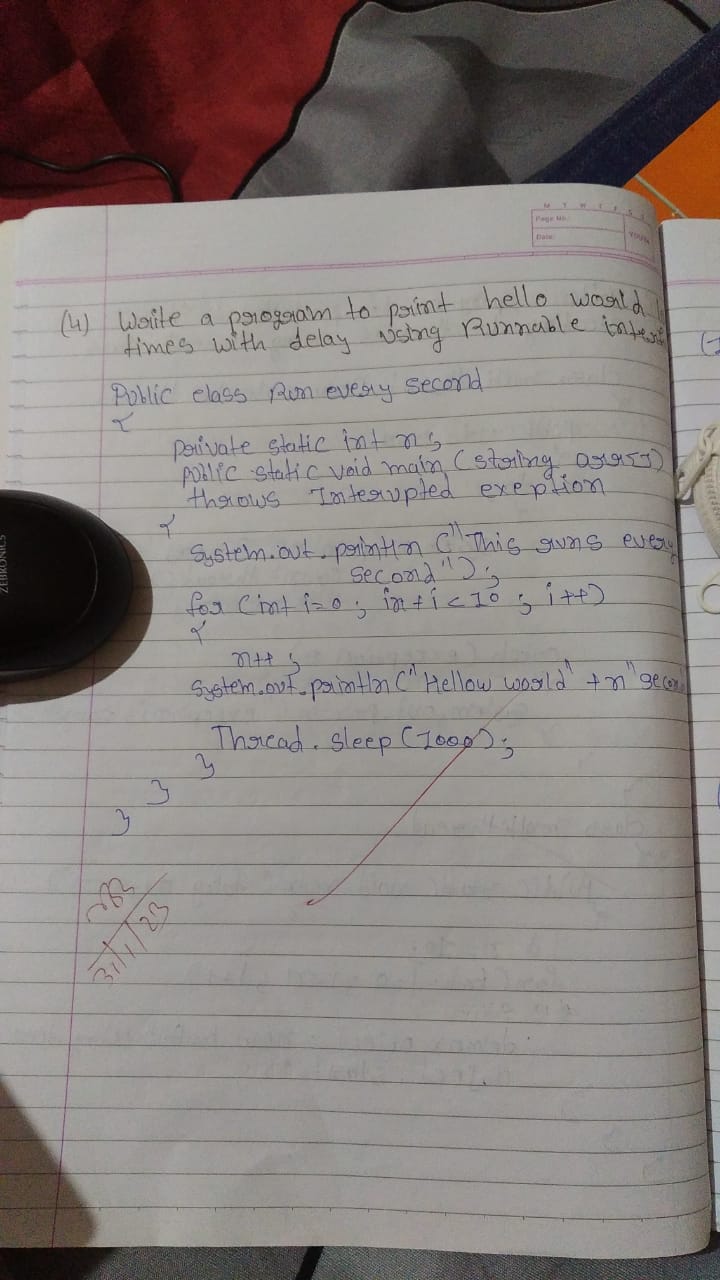 M T W T F S
Page No.:
Date:
YOUVA
(4) Write a program to print hello world
times with delay using Runnable
Public class Run every second
{
private static int n;
public static void main (string args[])
throws Interupted exeption
{
System.out.println ("This runs every
second");
for (int i=0; int i<10; i++)
{
n++;
System.out.println ("Hellow world" +n"
Thread.sleep (1000);
}
}
}
31/1/23
ZEBRONICS